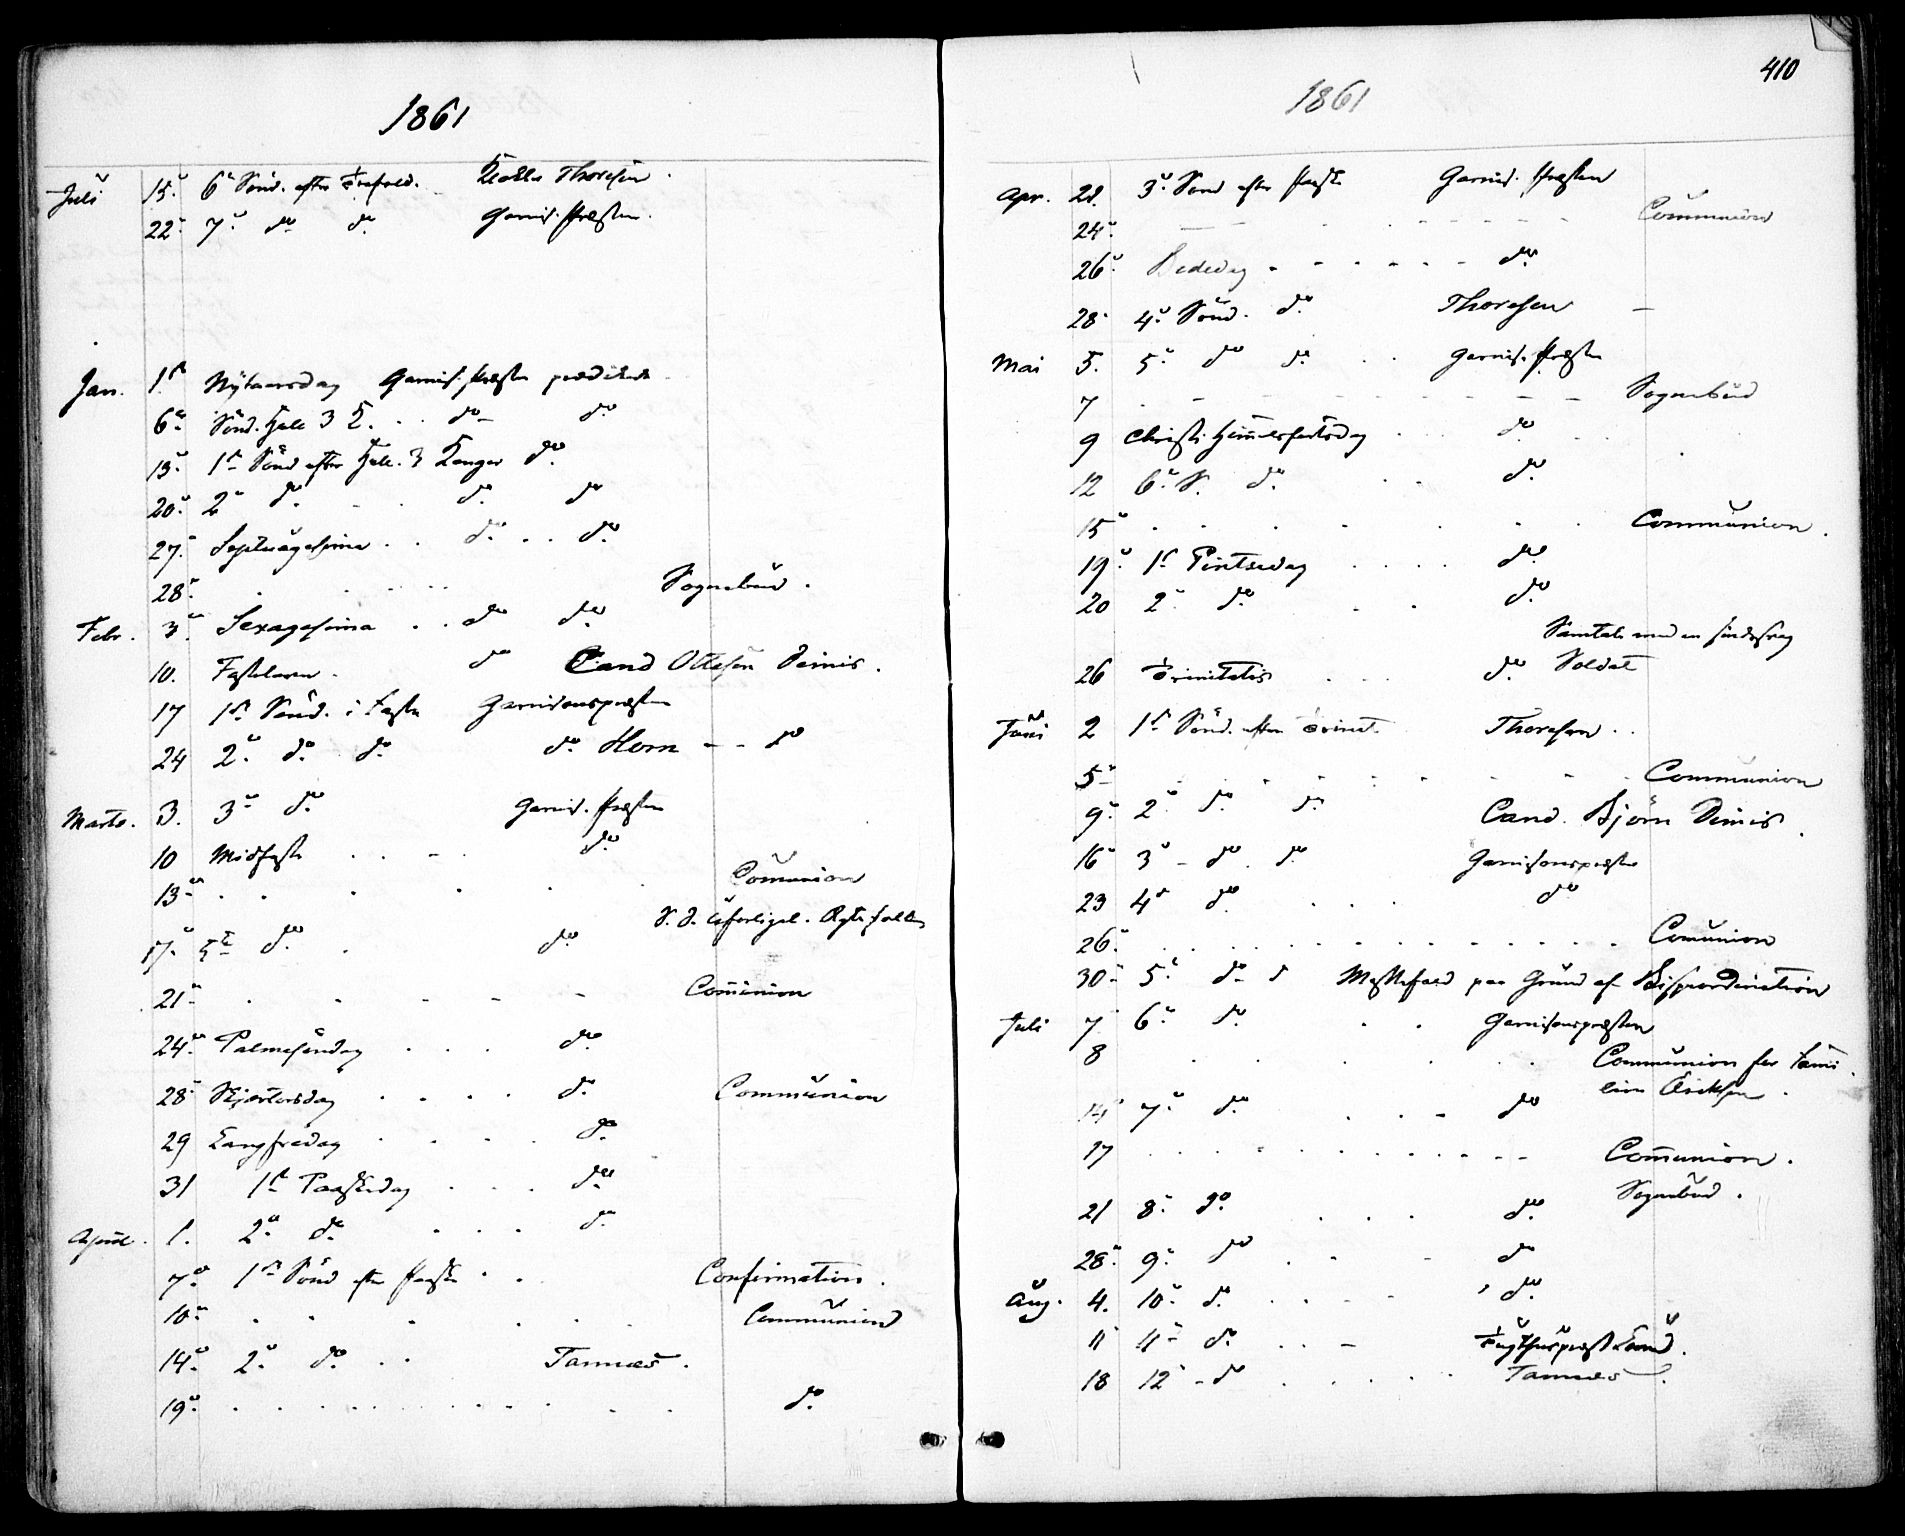 1861
Juli 15. 6te Sønd. efter Trefold. Thoresen.
22. 7. do do Garnis. Præsten.
Jan. 1ste Nytaarsdag Garnis. Præsten prædikede
6te Sønd. Hell. 3 K. . . do do
13. 1ste Sønd efter Hell. 3 Konger do.
20. 2. do. do. do
27. Septuagesima . . do . . do.
28. Sognebud.
Febr. 3. Sexagesima . . do do.
10. Fastelavn. do Cand Ottesen Dimis.
17 1ste Sønd. i Faste Garnisonspræsten
24 2. do. do. do. Horn - - do
Marts. 3. 3. do. Garnis. Præsten
10 Midfaste . . - . do.
13. . . . . . Comunion
S. d. uforligel. Ægtefolk
17. 5te do. . do.
21. . - - - - Comunion
24. Palmesøndag . . . do.
28 Skjærtorsdag . . . . do. Communion
29 Langfredag . . . . do.
31 1ste Paaskedag . . . do.
April. 1. 2. do. . . . do.
7. 1ste Sønd efter Paaske . . Confirmation.
10. . . . . . . Communion
14. 2. do. . . Tannæs.
19. . . . . . . . . . . do.
410
1861
Apr. 21. 3. Sønd efter Paaske Garnis. Præsten
24. - - - - - - Communion
26. Bededag - - - - - - do.
28. 4. Sønd. do. Thoresen -
Mai 5. 5. do do. . . Garnis. Præsten
7 . - - - - - - - Sognebud
9 Christi Himmelfartsdag . . . do.
12 6. S. do. . . do.
15 . . . . . . . Communion.
19. 1ste Pintsedag . . . . do.
20 2. do. . . do.
Samtale med en sindssvag
26 Trinitatis . . . do. Soldat
Juni 2 1ste Sønd. efter Trinit. Thoresen . .
5 . . . . . . . . . Communion
9. 2. do. do. Cand. Bjørn Dimis.
16 3 - do. do. Garnisonspræsten
23 4 do. . . . do.
26. . . . . . . . . . . . Comunion
30 5. do. d Messefald paa Grund af Bispeordination
Juli 7 6. do. . . Garnisonspræsten
8 . . . . . . Communion for Fami
lien
14 7. do. . . - do
17 . . . . . . . . . - - Communion.
Sognebud.
21 8. do. . . . do.
28. 9. do . . - do
Aug. 4. 10. do. . . - - do.
11 11 do. . . - Tugthuspræst Lund.
18 12 - do . . . . . . Tannæs.